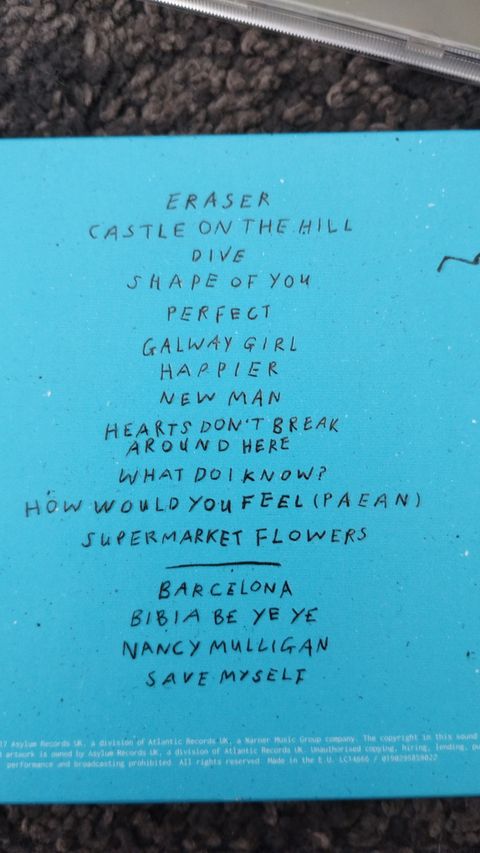 ERASER
CASTLE ON THE HILL
DIVE
SHAPE OF YOU
PERFECT
GALWAY GIRL
HAPPIER
NEW MAN
HEARTS DON'T BREAK
AROUND HERE
WHAT DO I KNOW?
HOW WOULD YOU FEEL (PAEAN)
SUPERMARKET FLOWERS
BARCELONA
BIBIA BE YE YE
NANCY MULLIGAN
SAVE MYSELF
17 Asylum Records UK, a division of Atlantic Records UK, a Warner Music Group company. The copyright in this sound
artwork is owned by Asylum Records UK, a division of Atlantic Records UK. Unauthorised copying, hiring, lending, pu
performance and broadcasting prohibited. All rights reserved. Made in the E.U. LC14666 / 0190295859022